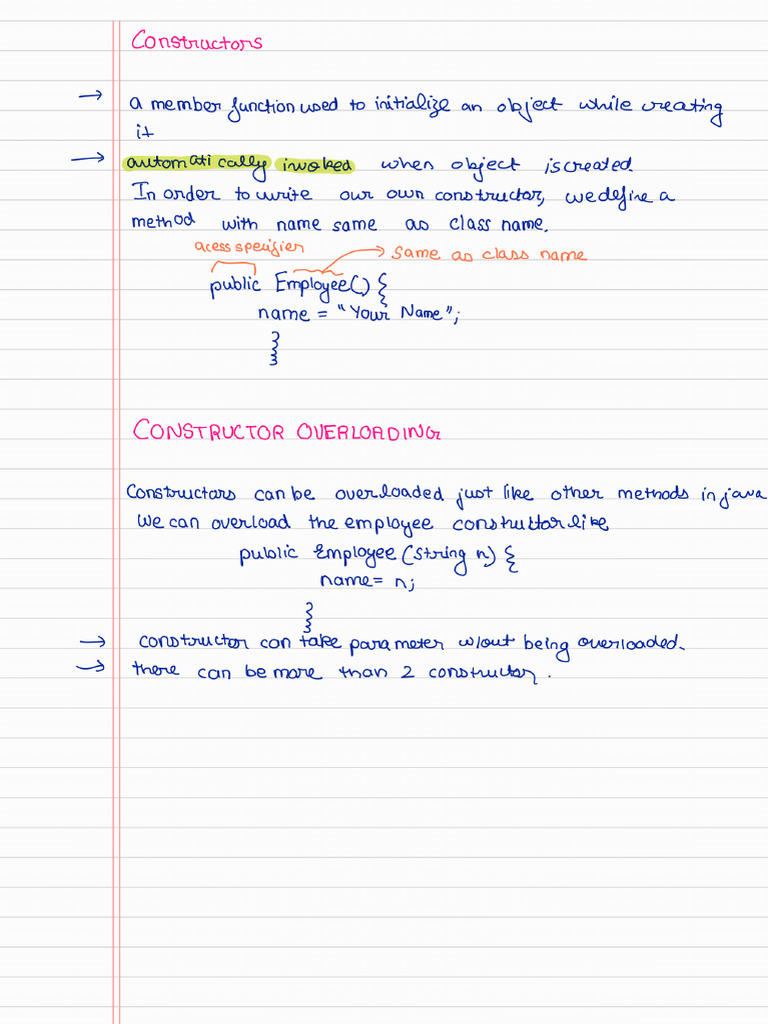 Constructors
→ a member function used to initialize an object while creating
it
→ automatically invoked when object is created.
In order to write our own constructor, we define a
method with name same as class name.
acess specifier → Same as class name
public Employee() {
name = "Your Name";
}
CONSTRUCTOR OVERLOADING
Constructors can be overloaded just like other methods in java
We can overload the employee constructor like
public Employee (String n) {
name = n;
}
→ constructor can take parameter w/out being overloaded.
→ there can be more than 2 constructor.